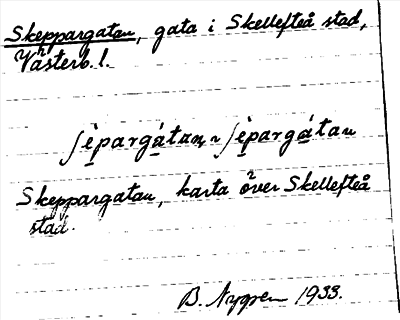 Skeppargatan, gata i Skellefteå stad,
Västerb. l.
ʃèpargátan, ~ ʃèpargátan
Skeppargatan, karta över Skellefteå
stad.
B. Nygren 1933.